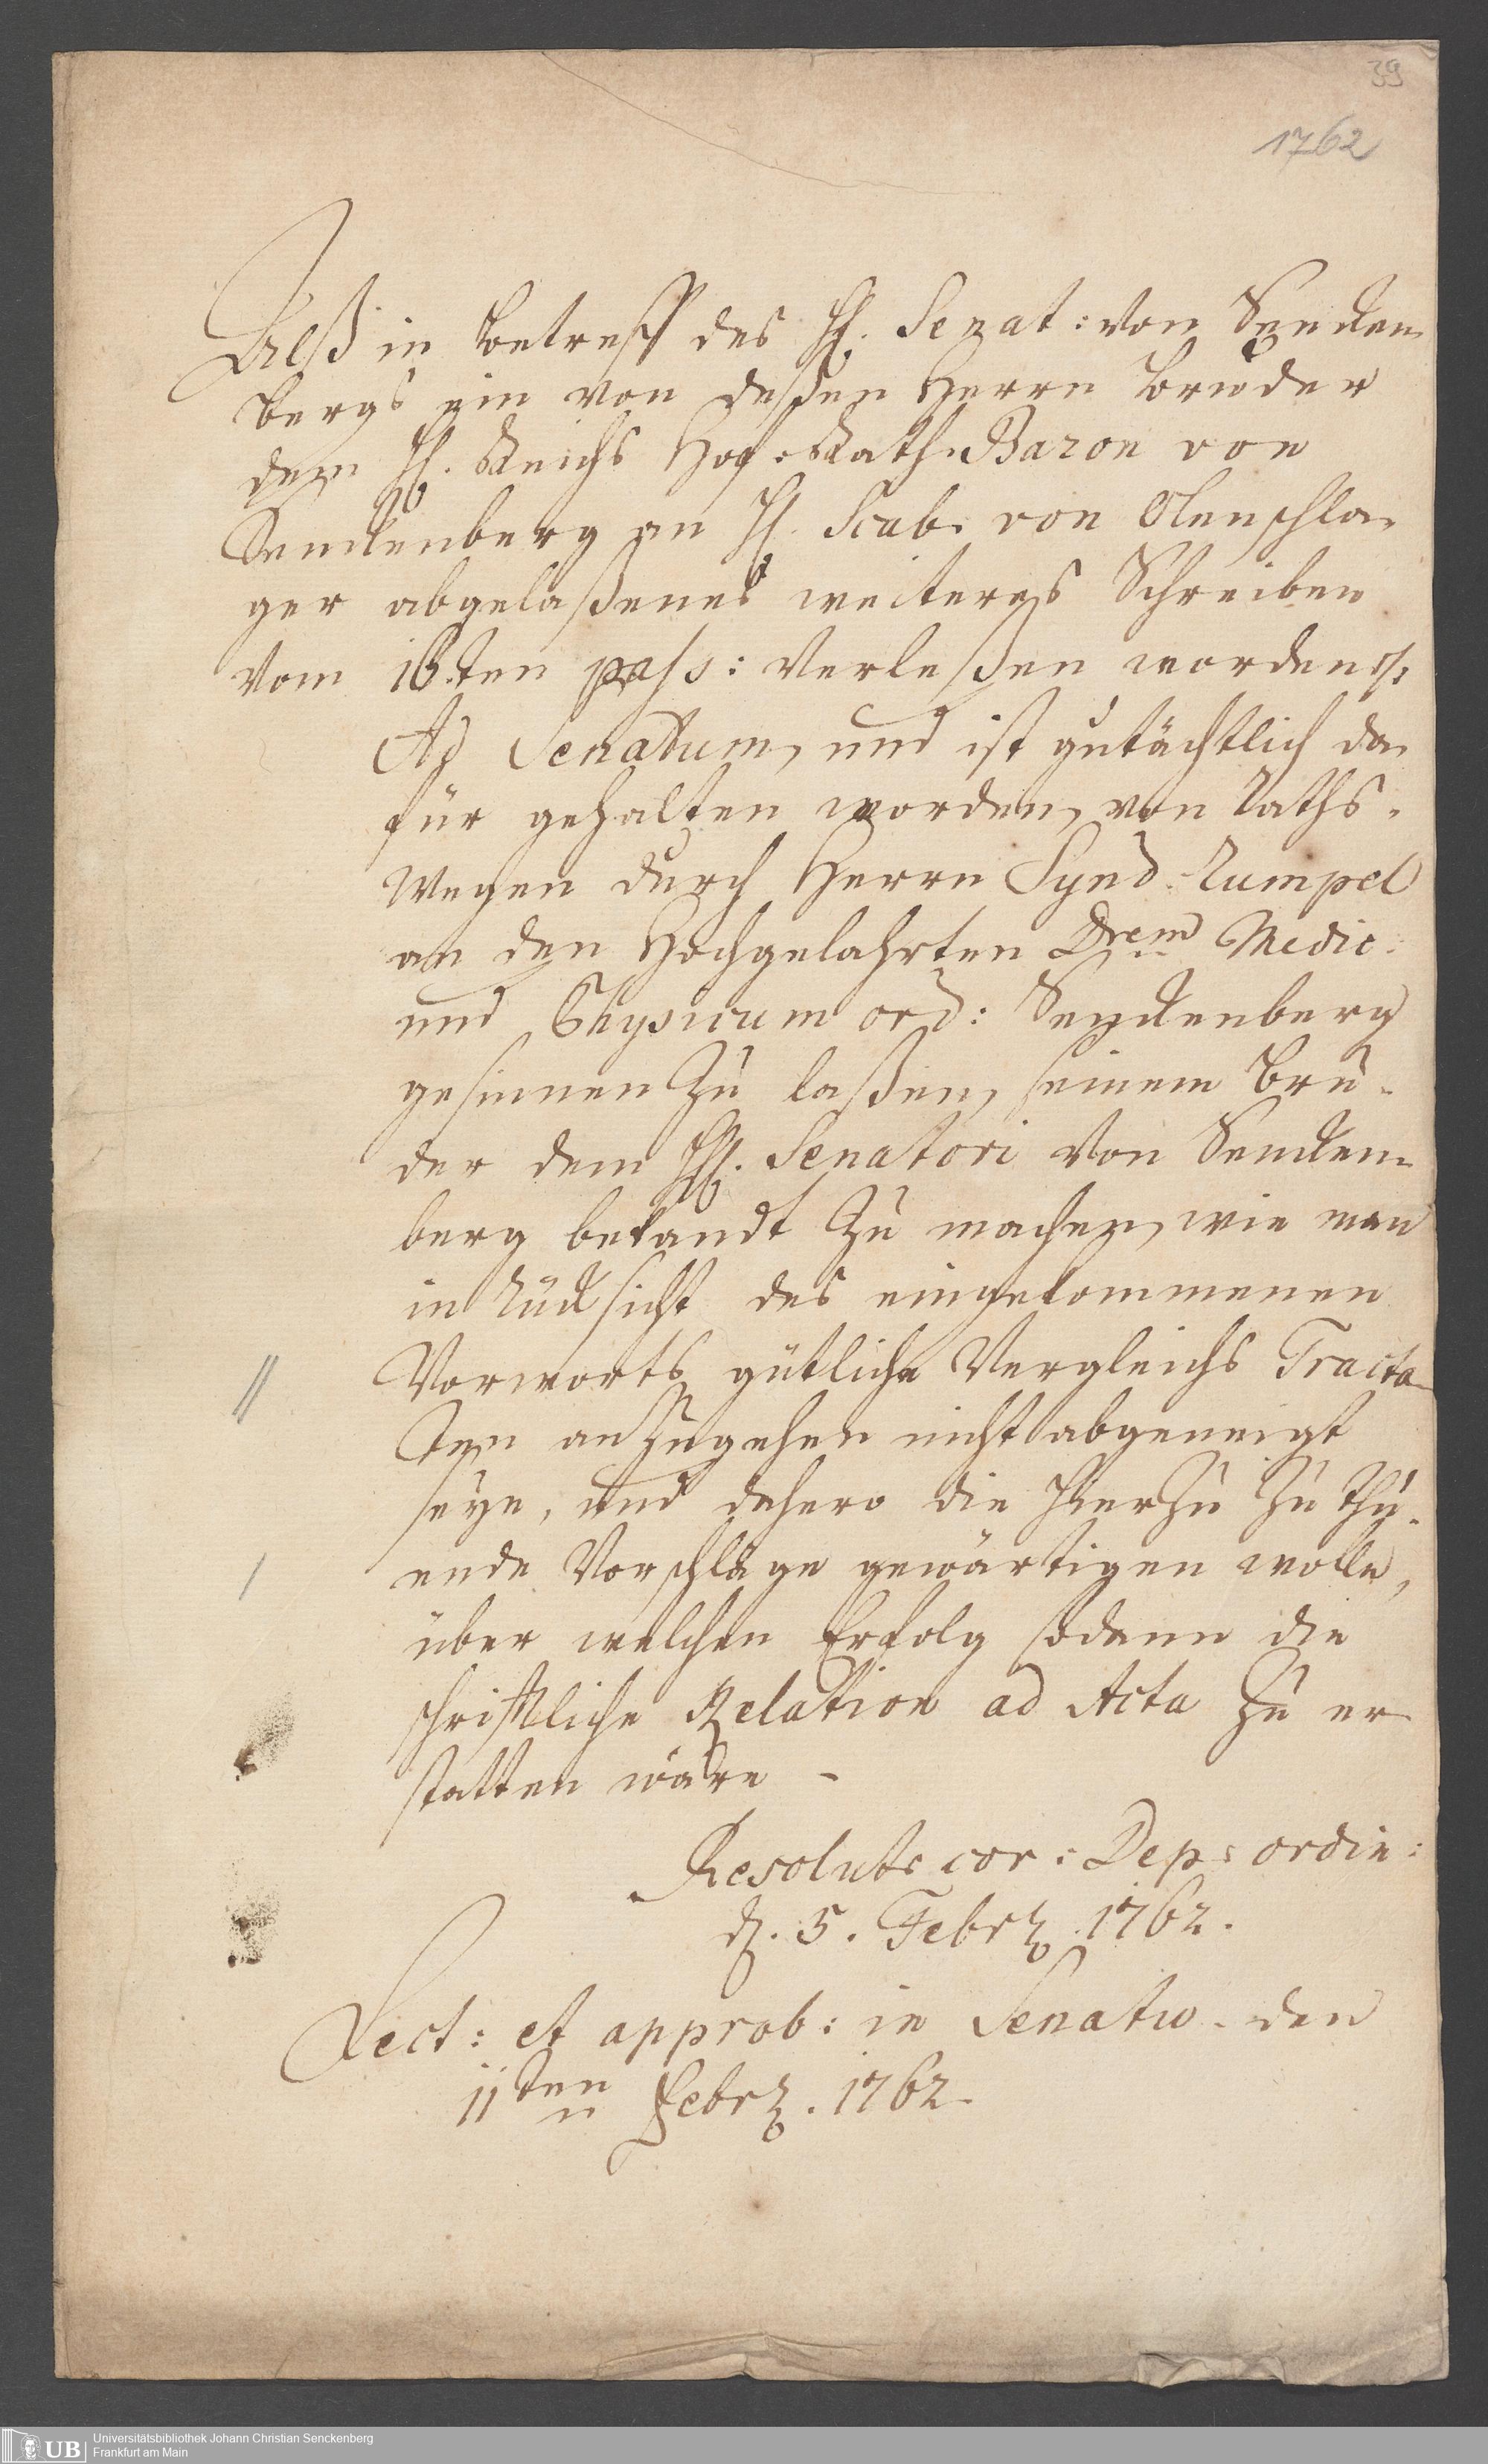 39
1762
Alß in betreff des H. Senat: von Sencken
bergs ein von deßen Herrn bruder
dem H. Reichs Hof-Rath Baron von
Senckenberg an H. Scab. von Olenschla-
ger abgelaßenes weiteres Schreiben
vom 16.ten pass: verleßen worden
Ad Senatum, und ist gutächtlich da-
für gehalten worden, von Raths-
wegen durch Herrn Synd. Rumpel
an den Hochgelahrten Drem Medic:
und Physicum ord: Senckenberg
gesinnen zu laßen, seinem bru-
der dem H. Senatori von Sencken-
berg bekandt zu machen, wie man
in Rücksicht des eingekommenen
Vorworts gütliche Vergleichs Tracta-
ten anzugehen nicht abgeneigt
seye, und dahero die hierzu zu thu-
ende Vorschläge gewärtigen wolle,
über welchen Erfolg sodann die
schriftliche Relation ad Acta zu er-
statten wäre -
Resolut: cor: Dep: ordin:
d. 5. Febr. 1762.
Lect: et approb: in Senatu den
11ten Febr. 1762.
UB
Universitätsbibliothek Johann Christian Senckenberg
Frankfurt am Main